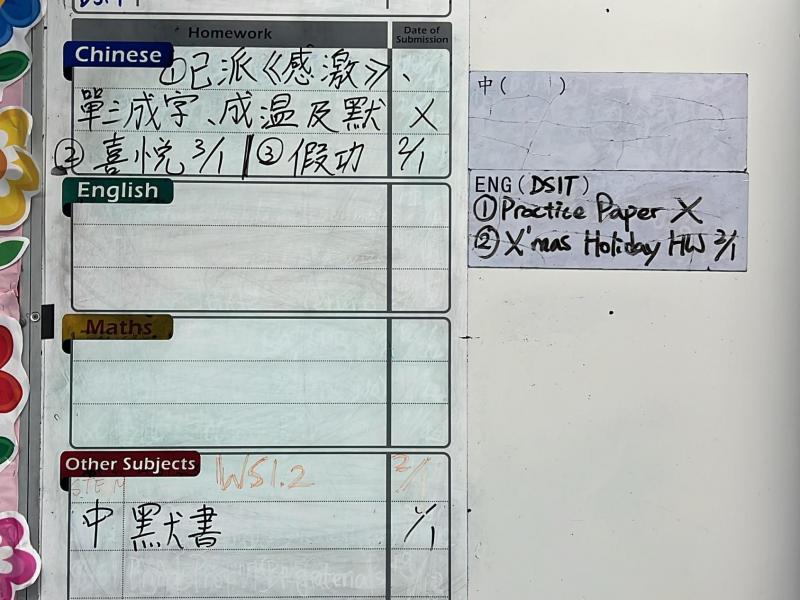 Homework
Date of Submission
Chinese
①已派《感激》、
單三成字、成溫及默 X
② 喜悅 3/1 | ③ 假功 2/1
English
Maths
Other Subjects
STEM WS1.2 2/1
中 默書
中( )
ENG(DSIT)
① Practice Paper X
② X'mas Holiday HW 2/1